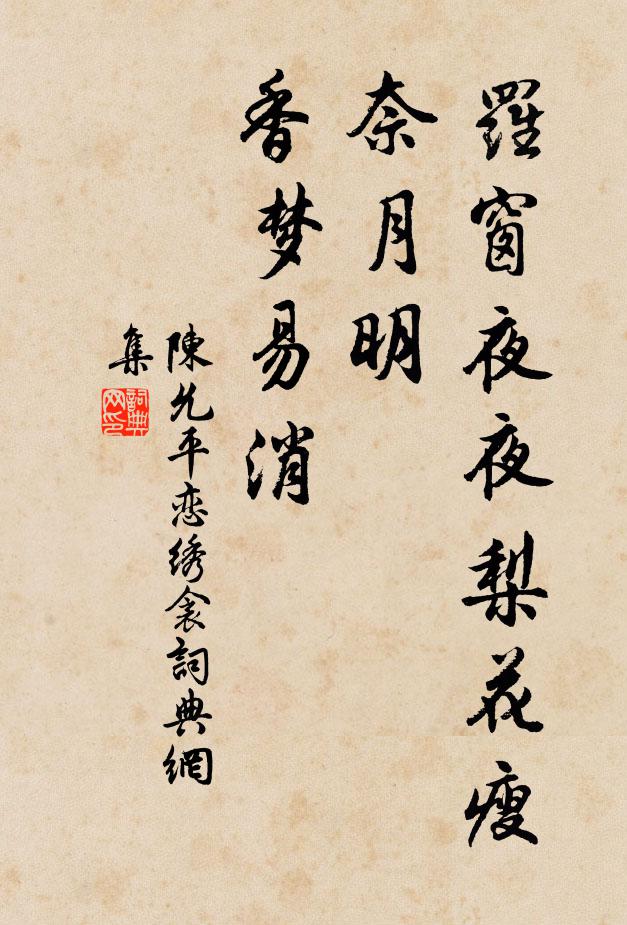 羅窗夜夜梨花瘦
奈月明
香梦易消
陳允平恋绣衾詞典網
集
詞典
网印